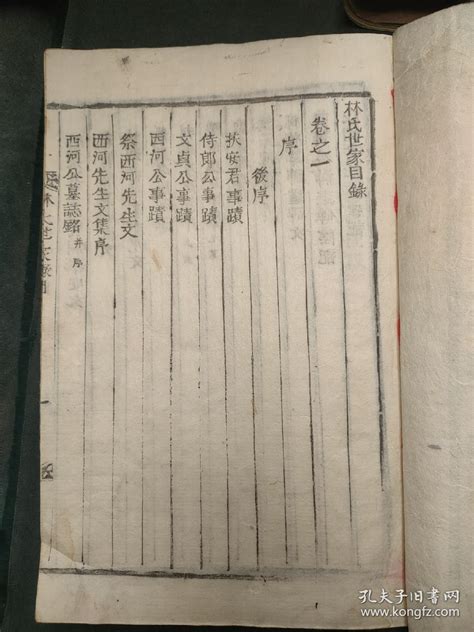 林氏世家目錄
卷之一
序
後序
扶安君事蹟
侍郎公事蹟
文貞公事蹟
西河公事蹟
祭西河先生文
西河先生文集序
西河公墓誌銘 并序
孔夫子旧书网
www.kongfz.com